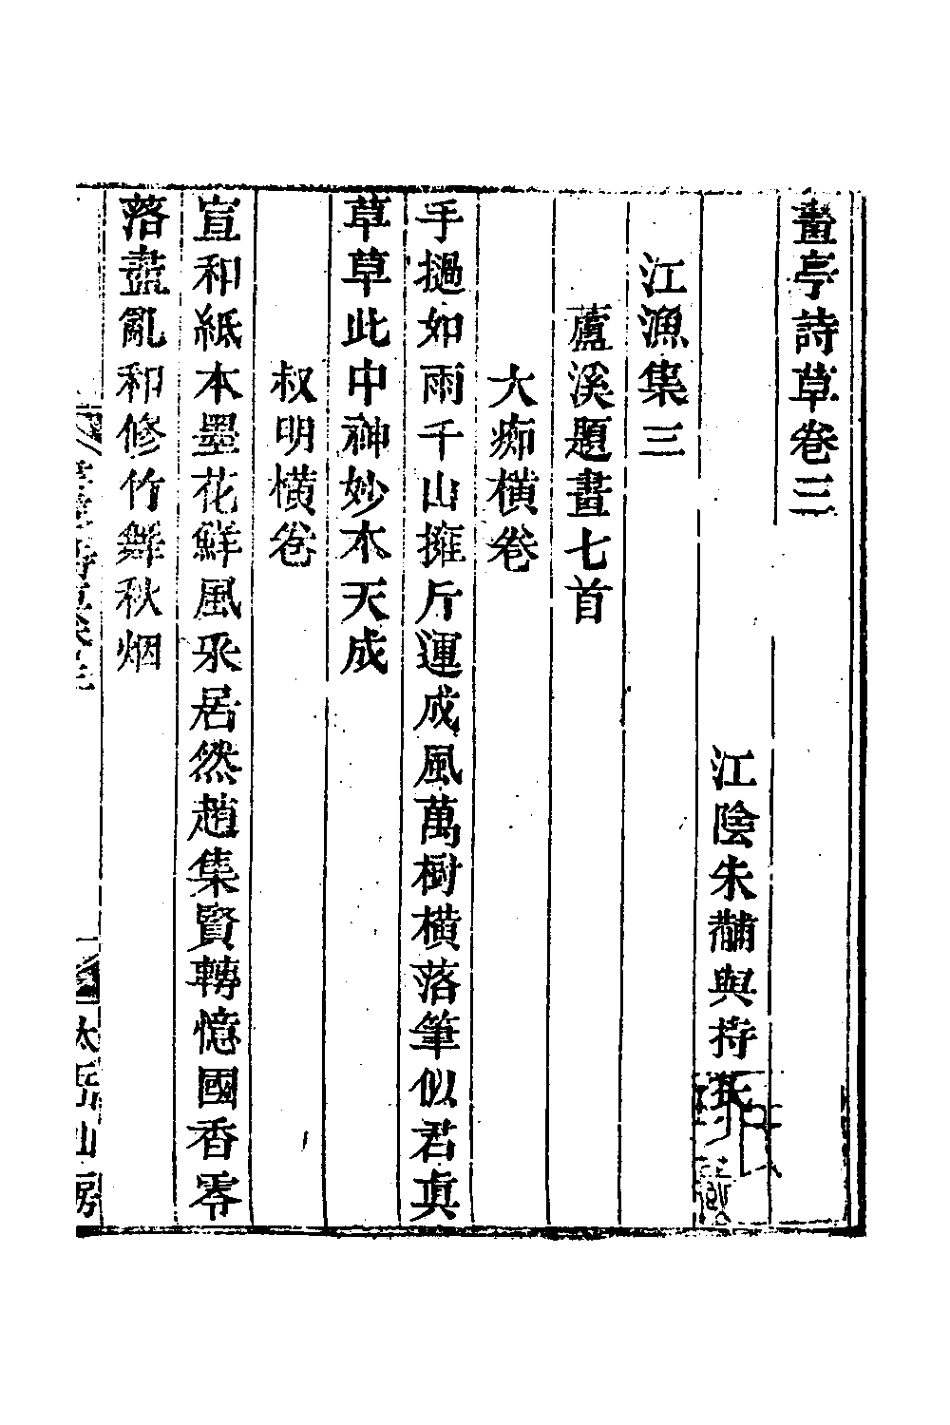 畫亭詩草卷三
江陰朱黼與持氏
江漁集三
蘆溪題畫七首
大痴橫卷
手撾如雨千山擁斤運成風萬樹橫落筆似君真
草草此中神妙本天成
叔明橫卷
宣和紙本墨花鮮風爪居然趙集賢轉憶國香零
落盡亂和修竹舞秋烟